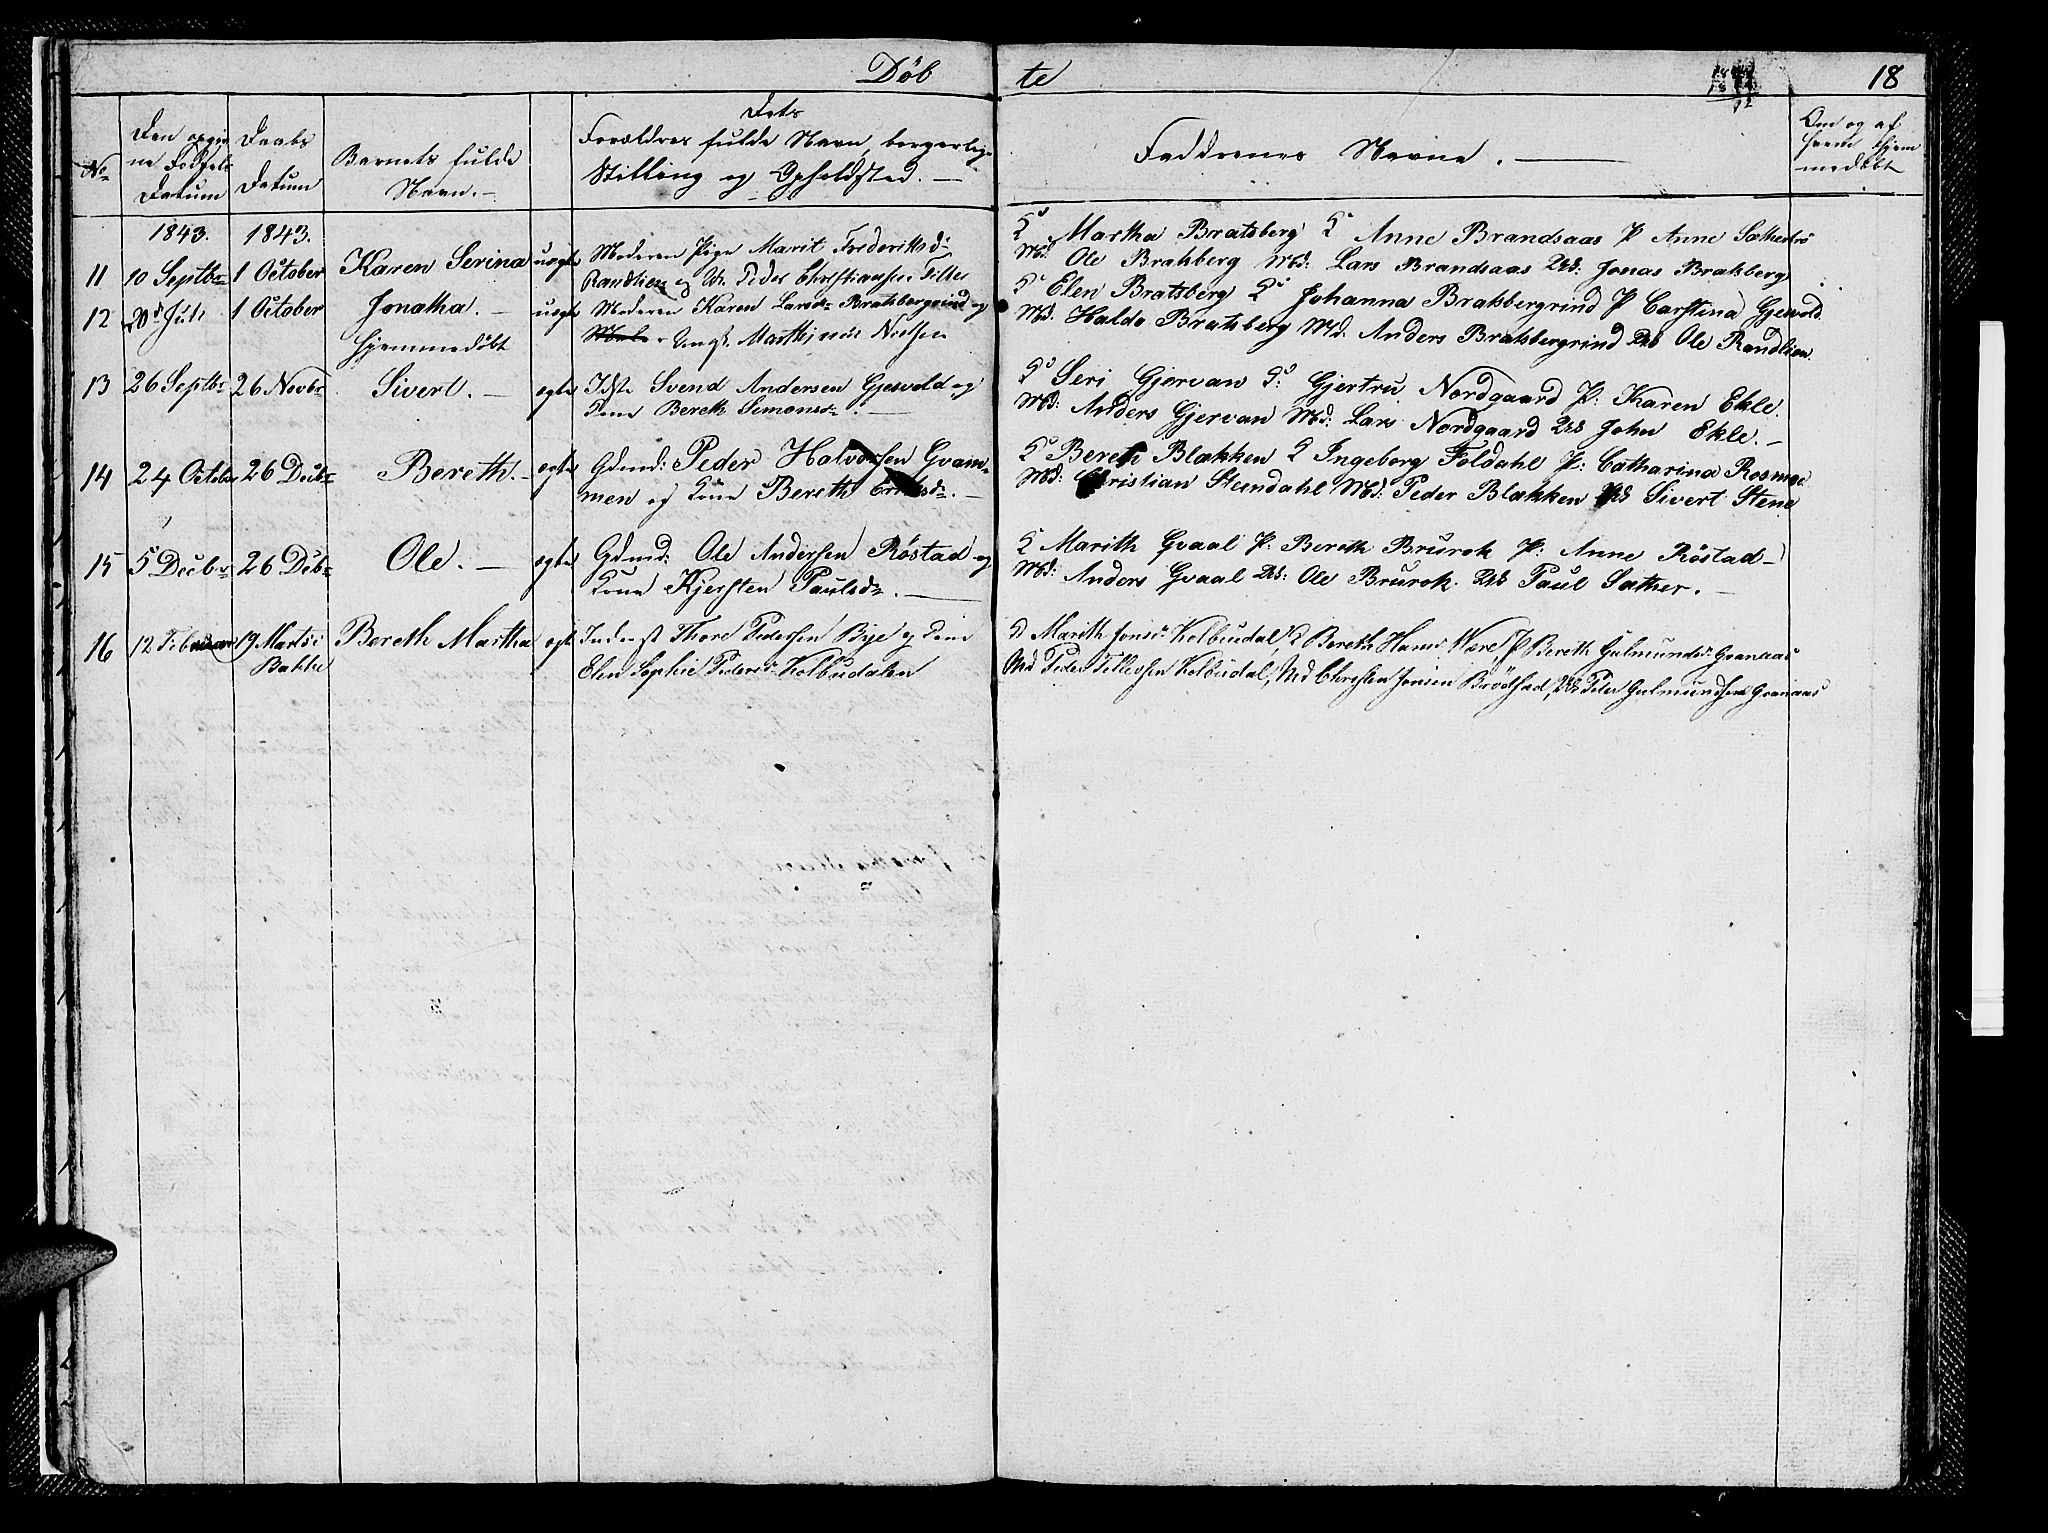 Döb te 18
No
Den opgiv
ne Fødsels
Datum
Daabs
Datum
Barnets fulde
Navn. -
Dets
Forældres fulde Navn, borgerlige
Stilling og Opholdsted. -
Faddrenes Navne. -
Om og af
hvem hjem
medøbt
1843. 1843.
11 10 Septbr 1 October Karen Serina uegte Moderen Pige Marit Frederiksd:
Randlien og Uk. Peder Christiansen Tiller
K Martha Bratsberg K Anne Brandsaas P Anne
Md: Ole Bratsberg Md: Lars Brandsaas Uk: Jonas Bratsberg
12 Juli 1 October Jonatha. - uegte Moderen Karen Larsd: Bratsbergrind og
hjemmedöbt
Ungk. Nielsen
K Elen Bratsberg K Johanna Bratsbergrind P Carstina Gjesvold
Md. Haldo Bratsberg Md. Anders Bratsbergrind Uk Ole Randlien.
13 26 Septbr 26 Novbr Sivert. - egte Idste Svend Andersen Gjesvold og
Kone Bereth Simonsd:. -
K Seri Gjervan K: Gjertru Nordgaard P: Karen Ekle.
Md: Anders Gjervan Md: Lars Nordgaard Uk John Ekle. -
14 24 October 26 Decbr Bereth. - egte Gdmd: Peder Halvorsen Gvam-
men og Kone Bereth -
K Bereth Blækken K Ingeborg Foldahl P: Catharina Rosmoe
Md: Christian Stendahl Md: Peder Blækken Uk Sivert Stene
15 5 Decbr 26 Debr Ole. - egte Gdmd: Ole Andersen Röstad og
Kone Kjersten Paulsd:. -
K Marith Gvaal P: Bereth Brurok P: Anne Röstad -
Md: Anders Gvaal Uk: Ole Brurok. Uk Paul Sæther. -
16 12 Februar 19 Marts i Bereth Martha egte Inderst Thore Pedersen Bye og Kone
Bakke Elen Sophie Pedersd: Kolbudalen
K Marith Jonsd: Kolbudal, K Bereth Hansd: Være, P Bereth Gulmundsd: Granaas
Md Peder Tellefsen Kolbudal, Md Christen Jonsen Brödstad, Uk Peter Gulmundsen Granaas